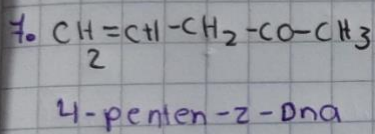 7. CH=CH-CH2-CO-CH3
2
4-penten-2-Ona